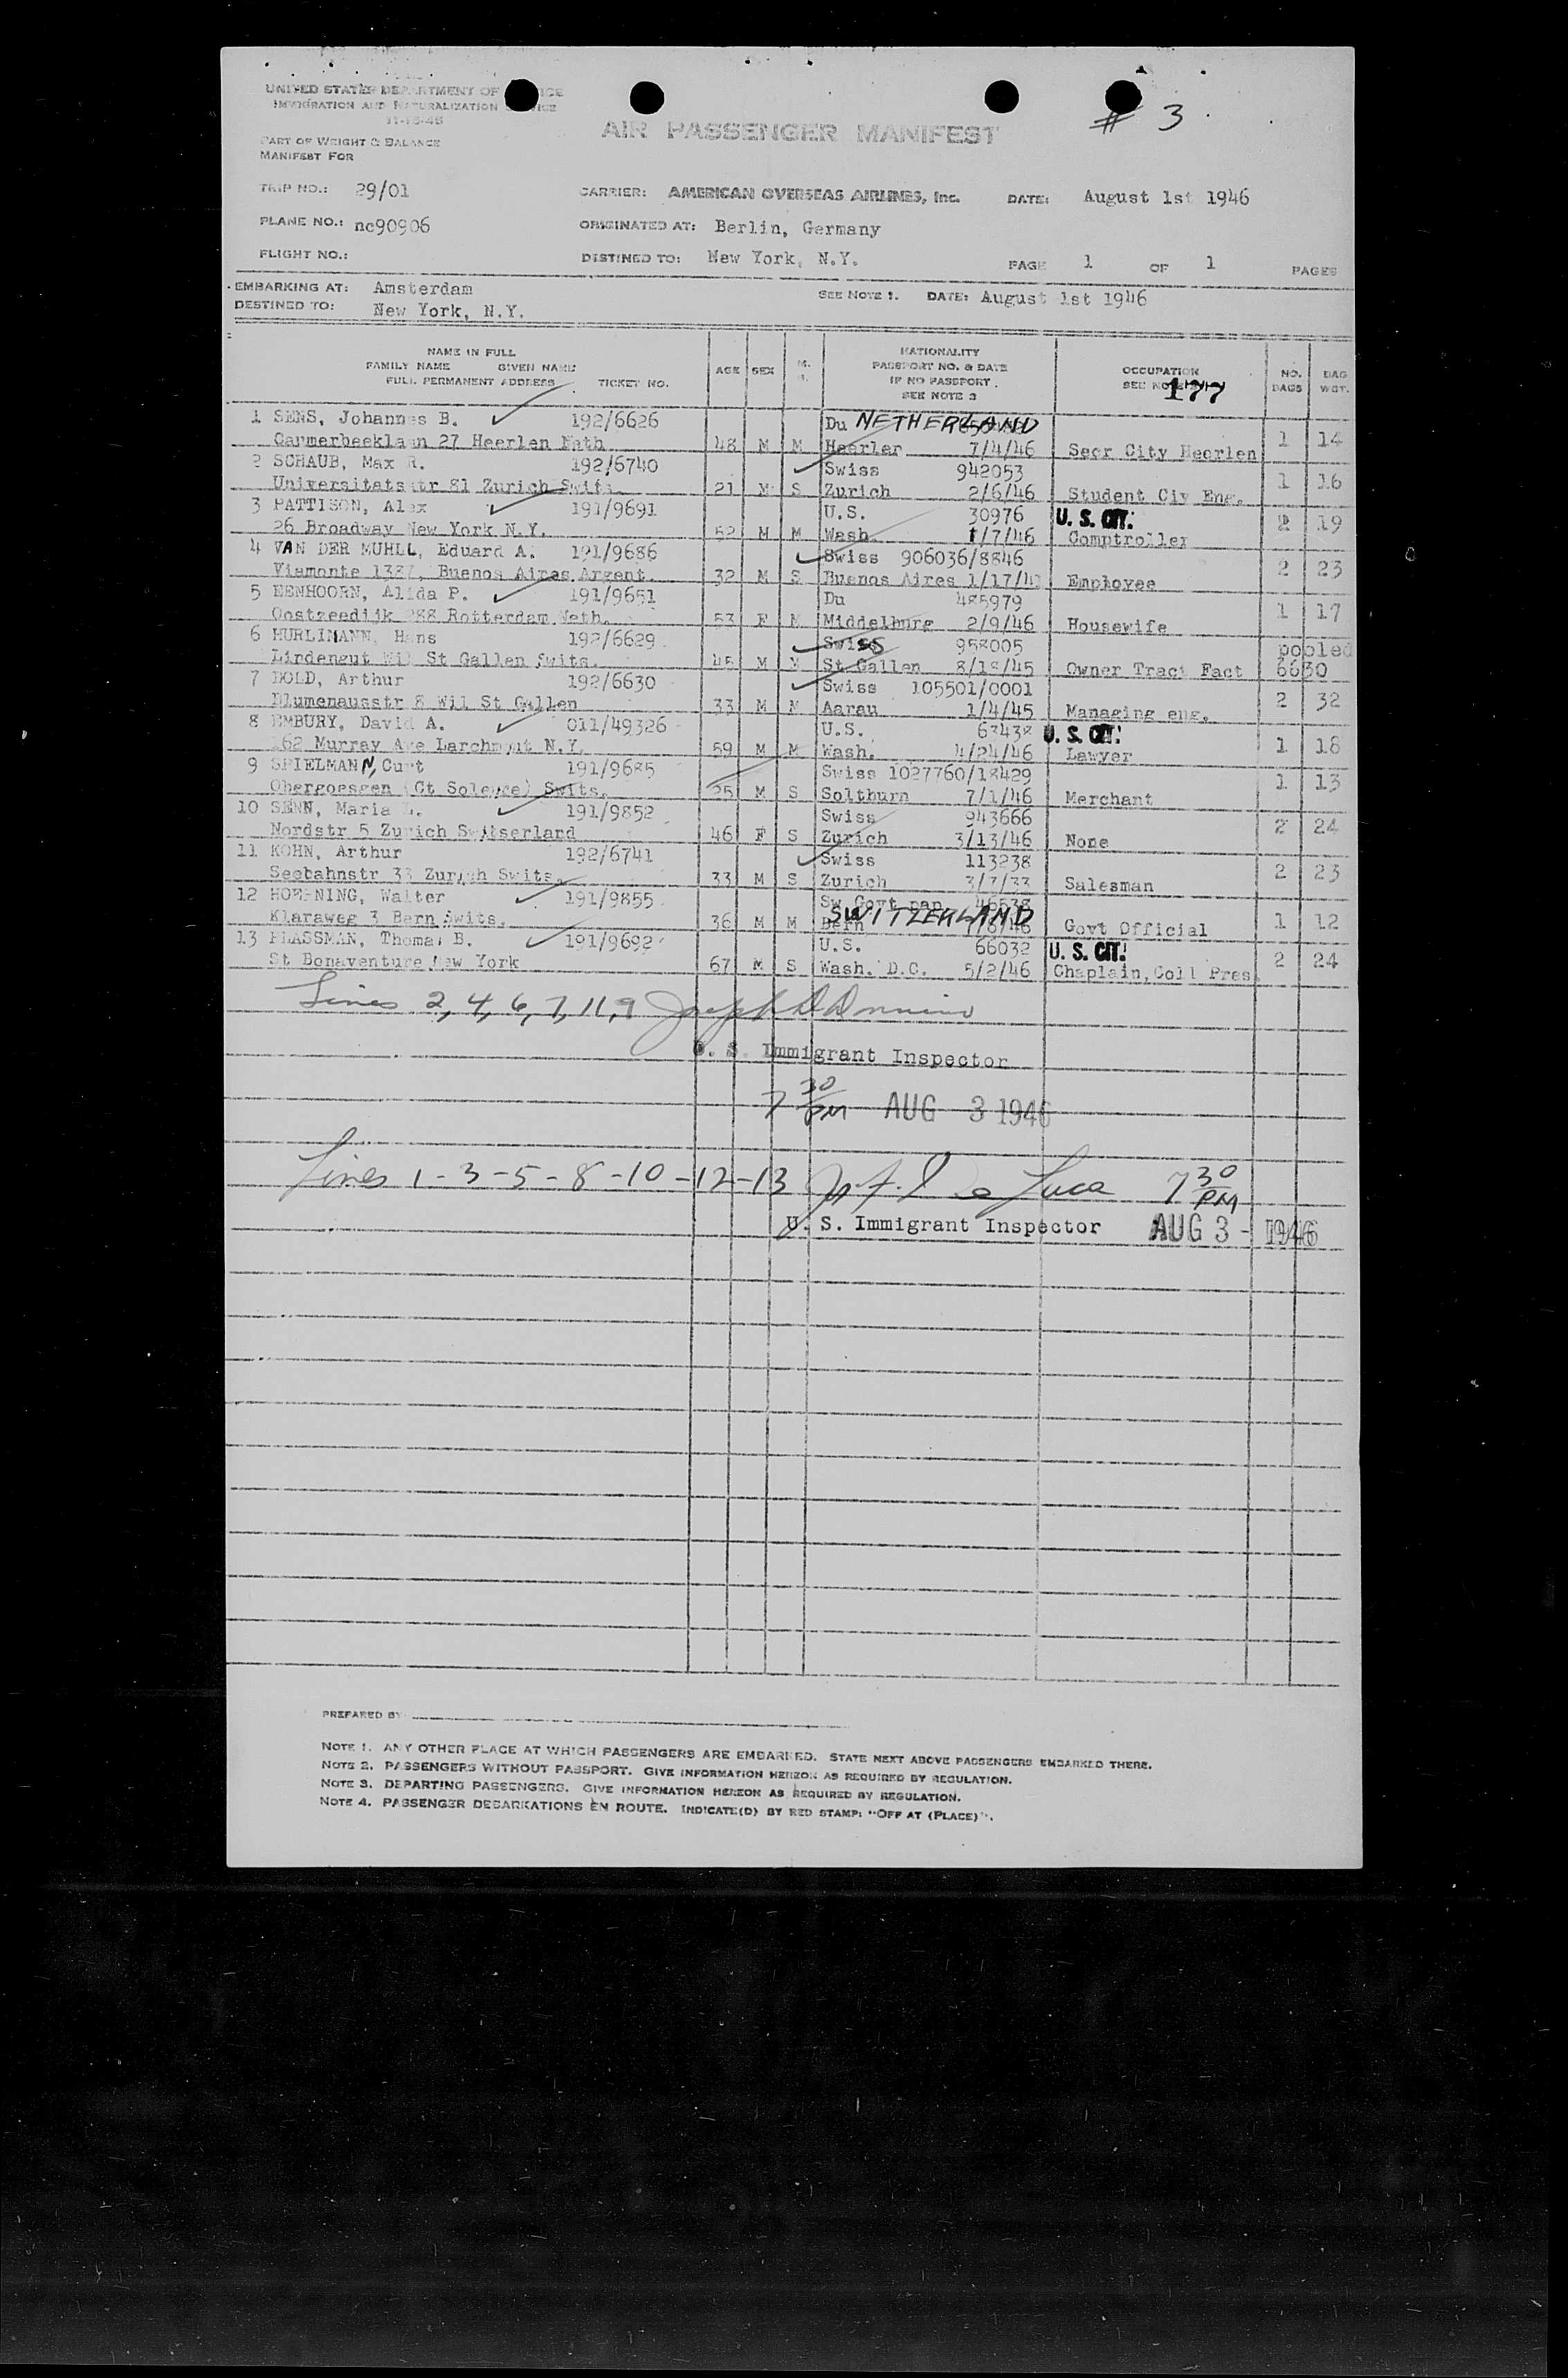 # 3
UNITED STATES DEPARTMENT OF
IMMIGRATION AND NATURALIZATION
11-15-45
AIR PASSENGER MANIFEST
PART OF WEIGHT & BALANCE
MANIFEST FOR
TRIP NO.: 29/01 CARRIER: AMERICAN OVERSEAS AIRLINES, Inc. DATE: August 1st 1946
PLANE NO.: nc90906 ORIGINATED AT: Berlin, Germany
FLIGHT NO.: DISTINED TO: New York, N.Y. PAGE 1 OF 1 PAGES
EMBARKING AT: Amsterdam SEE NOTE 1. DATE: August 1st 1946
DESTINED TO: New York, N.Y.
NAME IN FULL
FAMILY NAME GIVEN NAME
FULL PERMANENT ADDRESS TICKET NO.
AGE SEX M.
NATIONALITY
PASSPORT NO. & DATE
IF NO PASSPORT.
SEE NOTE 2
OCCUPATION
SEE NOTE
177
NO. BAGS
BAG WGT.
1 SENS, Johannes B. 192/6626 Du NETHERLAND 1 14
27 Heerlen Neth 48 M M Heerlen 7/4/46 Secr City Heerlen
2 SCHAUB, Max R. 192/6740 Swiss 942053 1 16
Universitatsstr 81 Zurich Swits. 21 M S Zurich 2/6/46 Student Civ Eng.
3 PATTISON, Alex 191/9691 U.S. 30976 U. S. CIT. 2 19
26 Broadway New York N.Y. 52 M M Wash 1/7/46 Comptroller
4 VAN DER MUHLL, Eduard A. 191/9686 Swiss 906036/8846 2 23
Viamonte 1387, Buenos Aires Argent. 32 M S Buenos Aires 1/17/ Employee
5 EENHOORN, Alida P. 191/9651 Du 485979 1 17
Oostzeedijk 288 Rotterdam Neth. 53 F M Middelburg 2/9/46 Housewife
6 HURLIMANN, Hans 192/6629 Swiss 958005 pooled
Lindengut Wil St Gallen Swits. 45 M M St Gallen 8/18/45 Owner Tract Fact 6630
7 DOLD, Arthur 192/6630 Swiss 105501/0001
Blumenausstr 8 Wil St Gallen 33 M M Aarau 1/4/45 Managing eng. 2 32
8 EMBURY, David A. 011/49326 U.S. 63438 U. S. CIT.
162 Murray Ave Larchmont N.Y. 59 M M Wash. 4/24/46 Lawyer 1 18
9 SPIELMANN, Curt 191/9685 Swiss 1027760/18429 1 13
Obergoesgen (Ct Soleure) Swits. 25 M S Solthurn 7/1/46 Merchant
10 SENN, Maria L. 191/9852 Swiss 943666 2 24
Nordstr 5 Zurich Switserland 46 F S Zurich 3/13/46 None
11 KOHN, Arthur 192/6741 Swiss 113238 2 23
Seebahnstr 33 Zurich Swits. 33 M S Zurich 3/7/33 Salesman
12 Walter 191/9855 Sw Govt pap 46538
Klaraweg 3 Bern Swits. 36 M M SWITZERLAND Bern Govt Official 1 12
13 PLASSMAN, Thomas B. 191/9692 U.S. 66032 U. S. CIT. 2 24
St Bonaventure New York 67 M S Wash. D.C. 5/2/46 Chaplain, Coll Pres
Lines 2, 4, 6, 7, 11, 9 Joseph D
U. S. Immigrant Inspector
7 30 PM AUG 3 1946
Lines 1 - 3 - 5 - 8 - 10 - 12 - 13 De Luca 7 30 PM
U. S. Immigrant Inspector AUG 3 - 1946
PREPARED BY
NOTE 1. ANY OTHER PLACE AT WHICH PASSENGERS ARE EMBARKED. STATE NEXT ABOVE PASSENGERS EMBARKED THERE.
NOTE 2. PASSENGERS WITHOUT PASSPORT. GIVE INFORMATION HEREON AS REQUIRED BY REGULATION.
NOTE 3. DEPARTING PASSENGERS. GIVE INFORMATION HEREON AS REQUIRED BY REGULATION.
NOTE 4. PASSENGER DEBARKATIONS EN ROUTE. INDICATE(D) BY RED STAMP: "OFF AT (PLACE)".